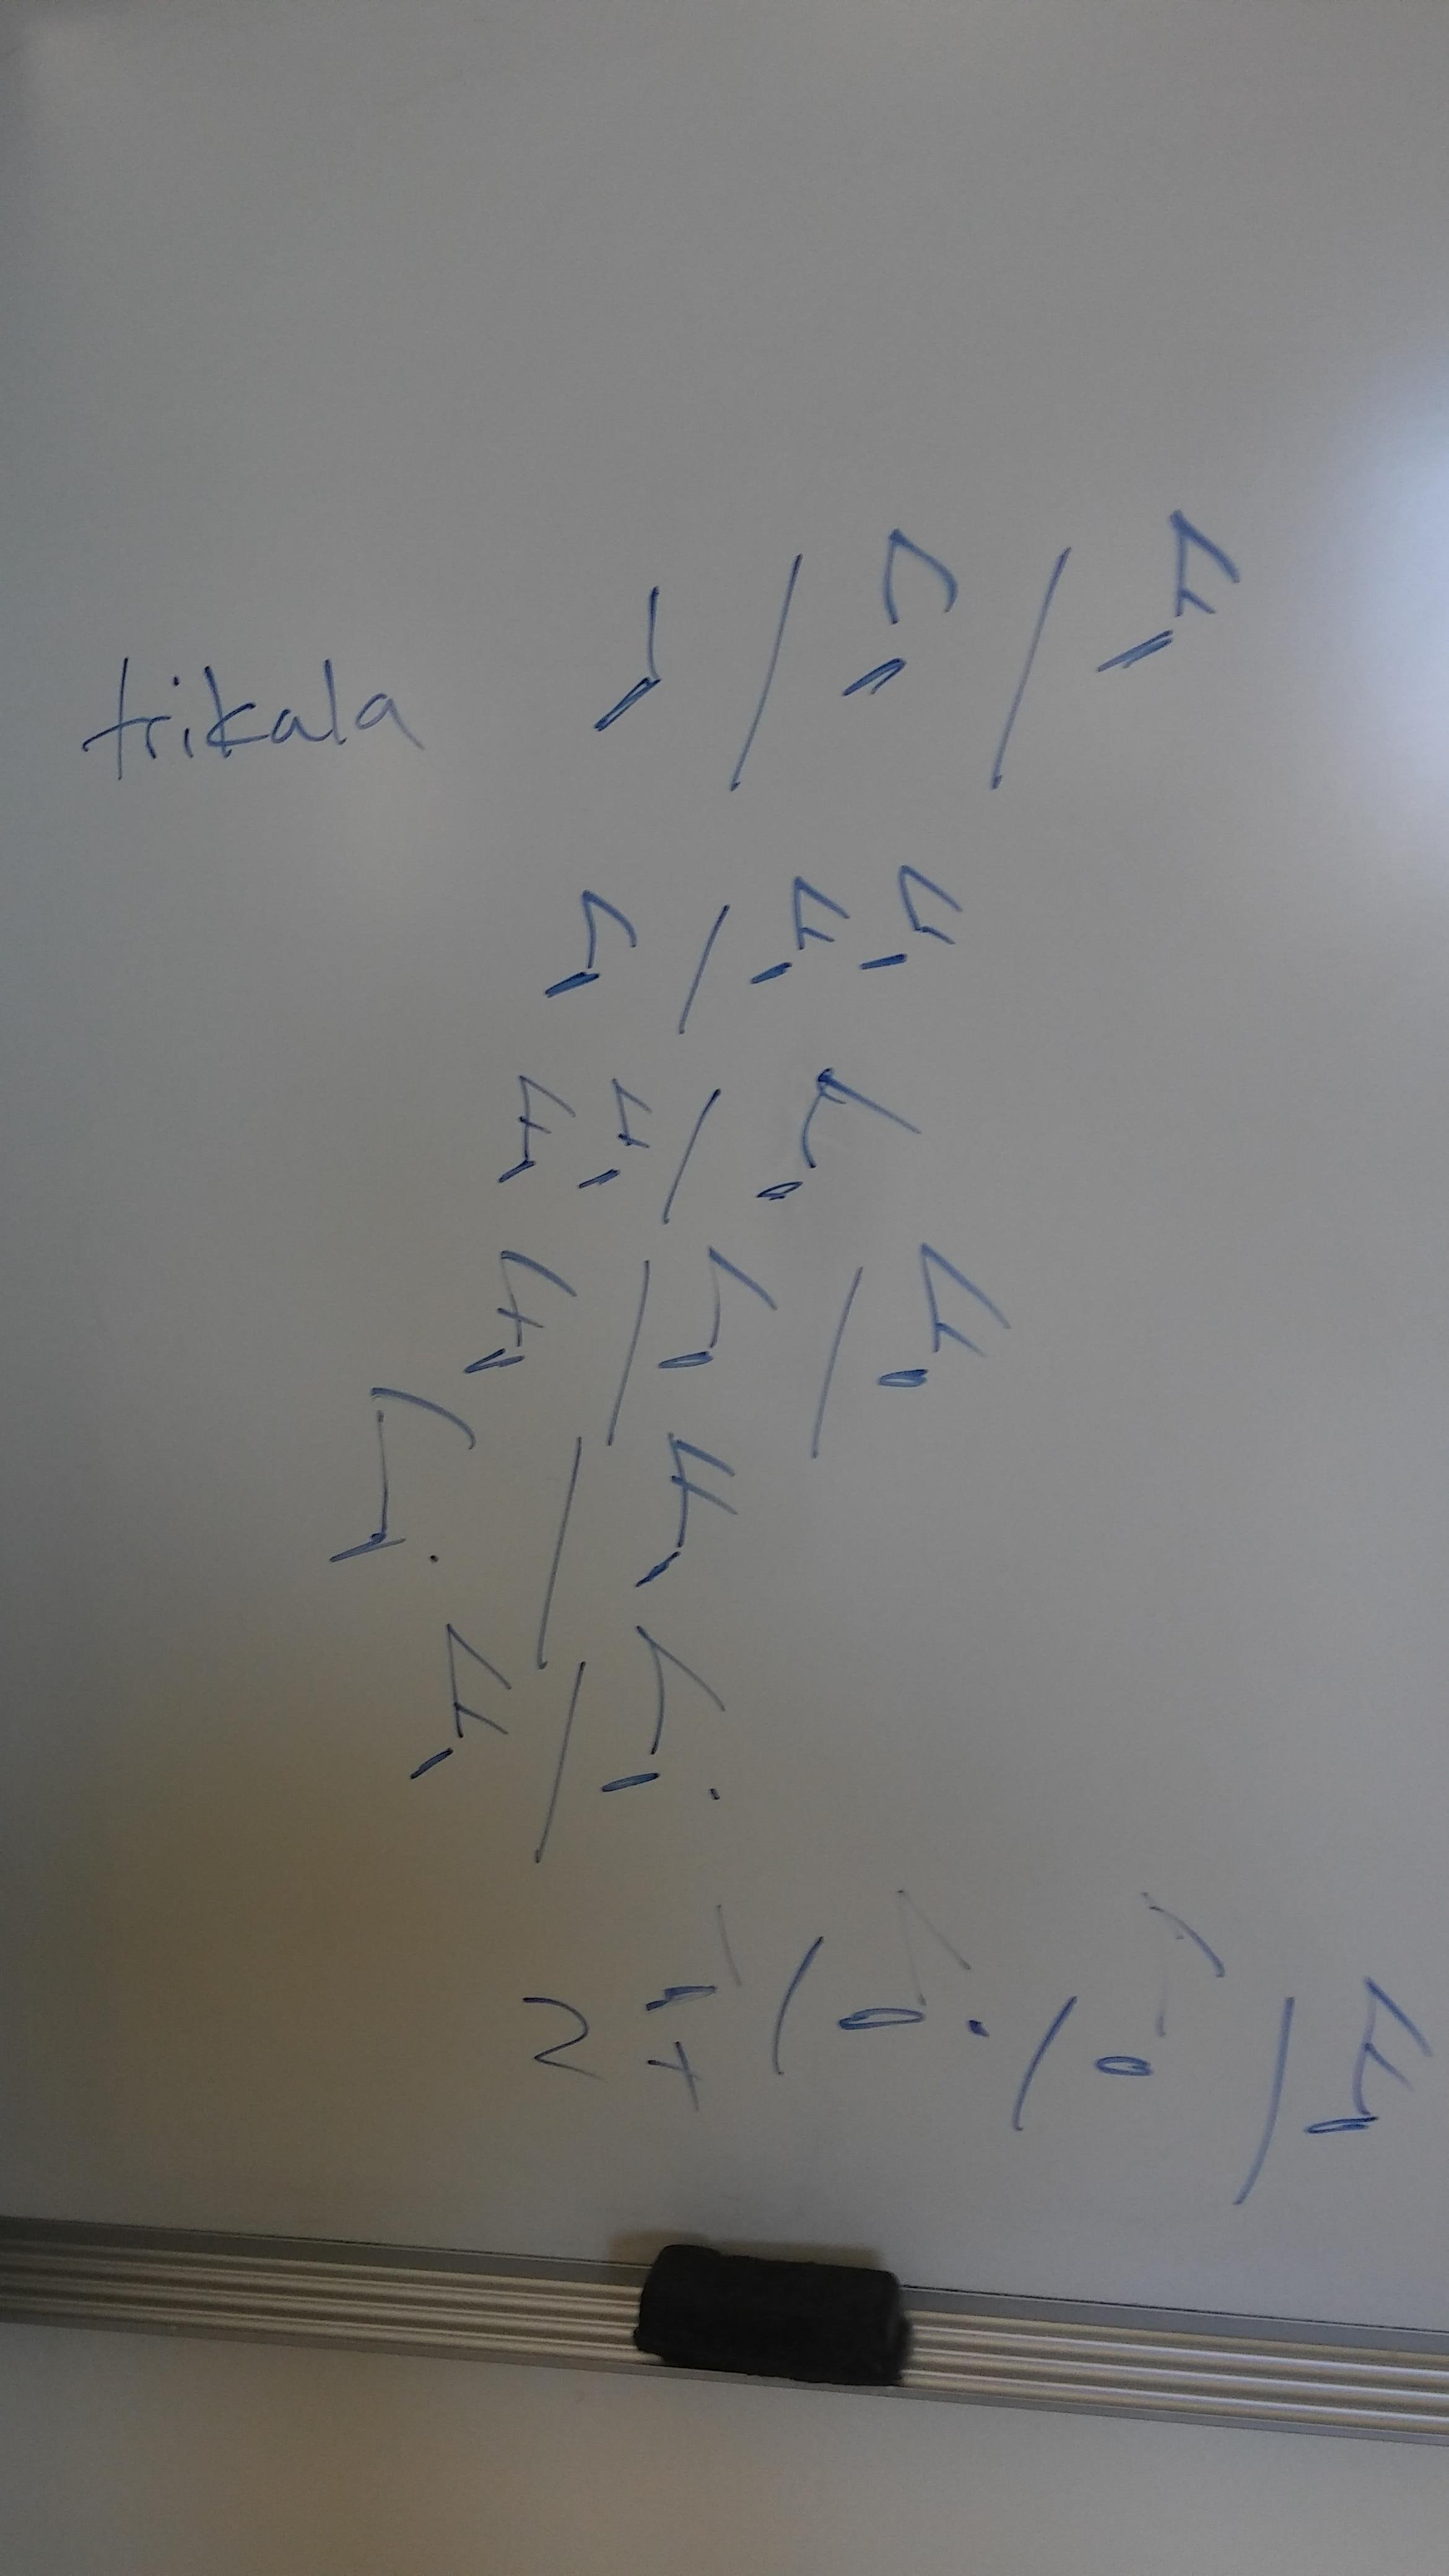 trikala ♩ / ♪ / 𝅘𝅥𝅯
♪ / 𝅘𝅥𝅯 𝅘𝅥𝅯
𝅘𝅥𝅯 𝅘𝅥𝅯 / ♪
𝅘𝅥𝅯 / ♪ / 𝅘𝅥𝅯
♪. / 𝅘𝅥𝅯
𝅘𝅥𝅯 / ♪.
2 + ♩ / ♪. / ♪ / 𝅘𝅥𝅯